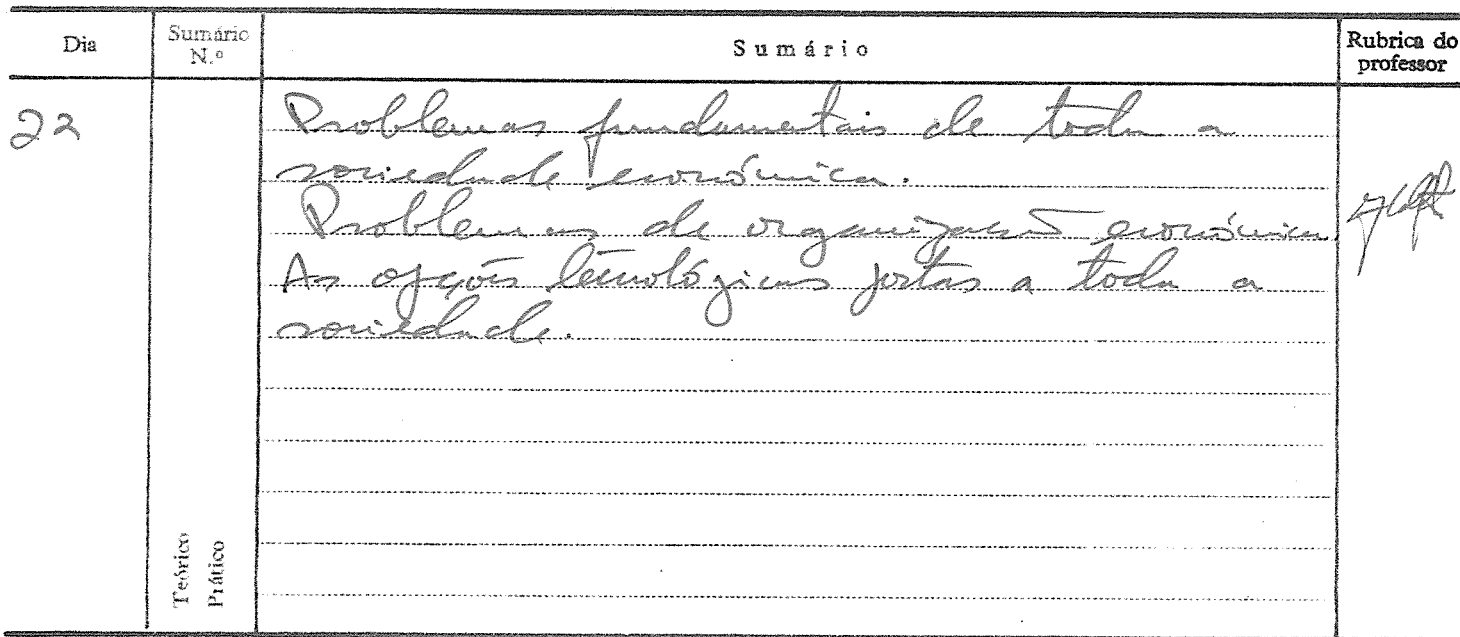 Dia
Sumário N.º
Sumário
Rubrica do professor
22
Problemas fundamentais de toda a
sociedade económica.
Problemas de organização económica
As opções tecnológicas postas a toda a
sociedade.
Teórico
Prático